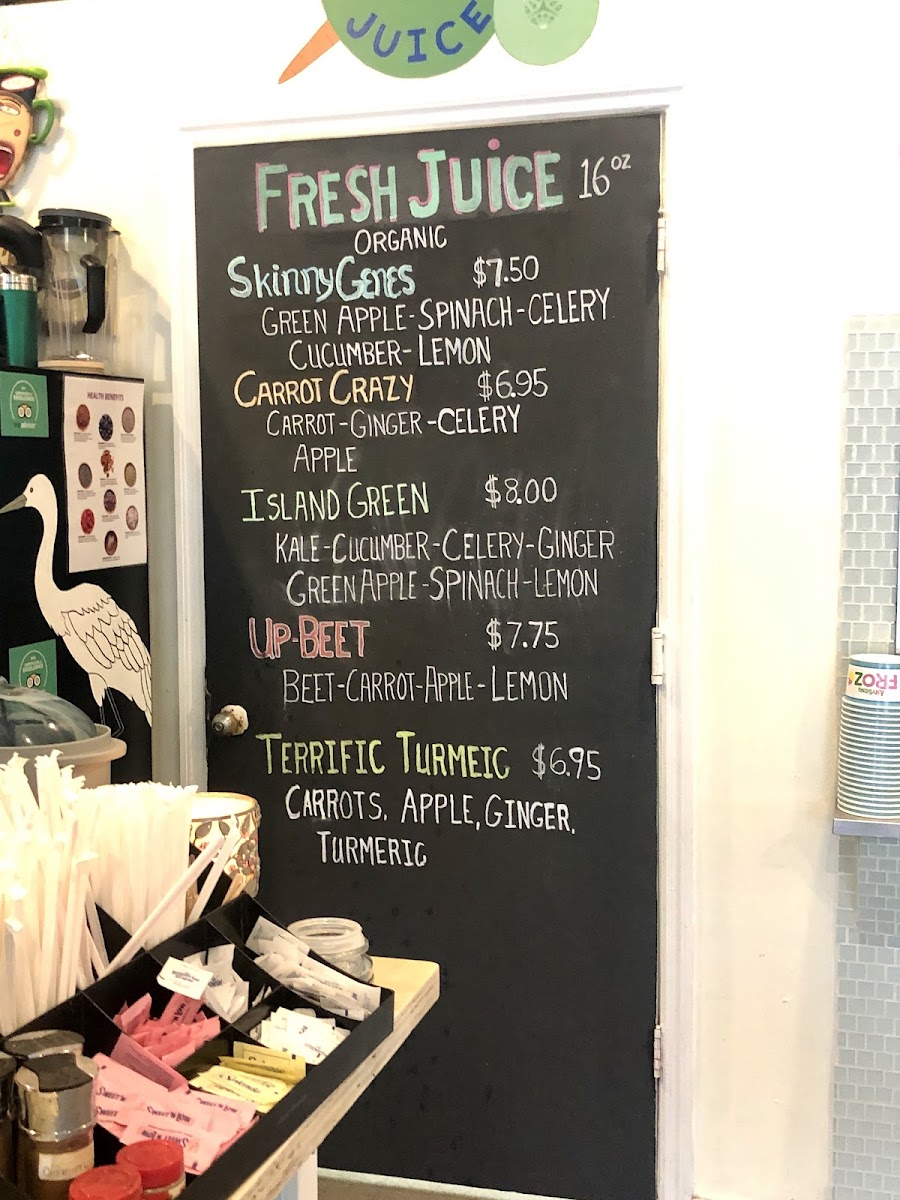 JUICE
FRESH JUICE 16 OZ
ORGANIC
SkinnyGENES $7.50
GREEN APPLE-SPINACH-CELERY
CUCUMBER-LEMON
CARROT CRAZY $6.95
CARROT-GINGER-CELERY
APPLE
ISLAND GREEN $8.00
KALE-CUCUMBER-CELERY-GINGER
GREEN APPLE-SPINACH-LEMON
UP-BEET $7.75
BEET-CARROT-APPLE-LEMON
TERRIFIC TURMEIC $6.95
CARROTS, APPLE, GINGER,
TURMERIC
HEALTH BENEFITS
FROZ
SWEET'N LOW